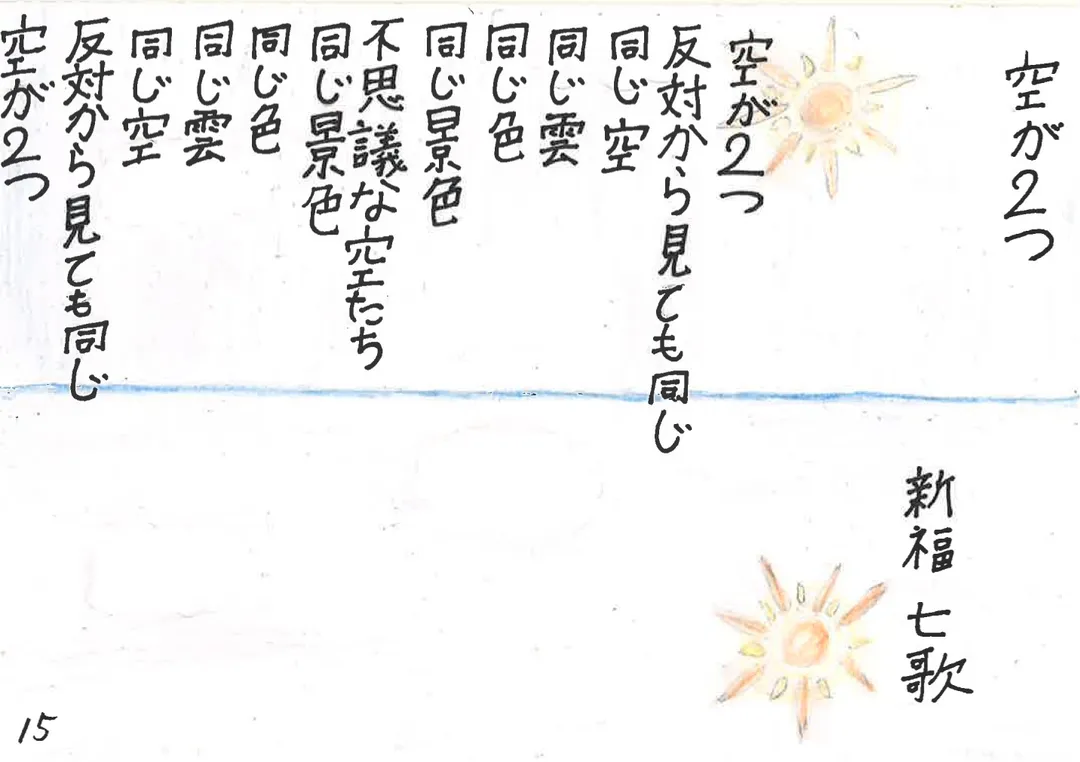 空が2つ
新福 七歌
空が2つ
反対から見ても同じ
同じ空
同じ雲
同じ色
同じ景色
不思議な空たち
同じ景色
同じ色
同じ雲
同じ空
反対から見ても同じ
空が2つ
15